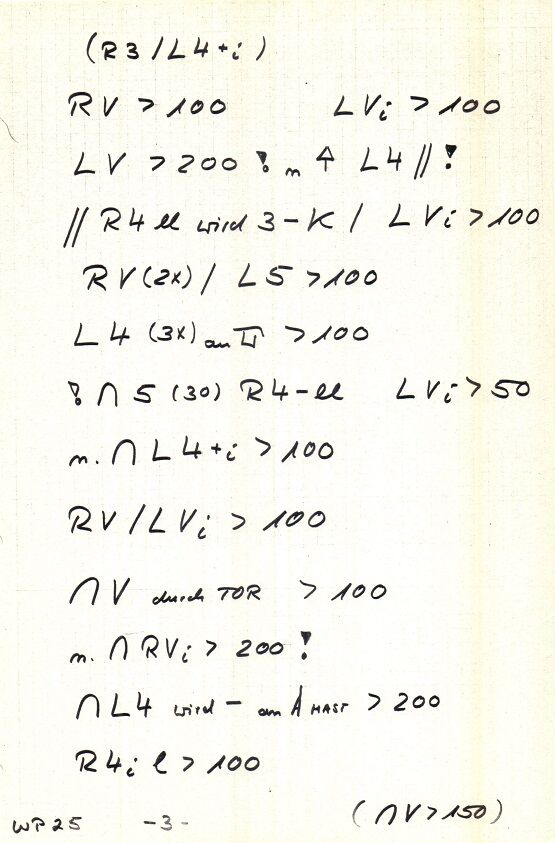 (R3/L4+i)
RV > 100 LVi > 100
LV > 200 ! n ↑ L4 // !
// R4 ll wird 3-K / LVi > 100
RV (2x) / L5 > 100
L4 (3x) an > 100
! ∩ 5 (30) R4-ll LVi > 50
n. ∩ L4+i > 100
RV / LVi > 100
∩ V durch TOR > 100
n. ∩ RVi > 200 !
∩ L4 wird - am MAST > 200
R4i l > 100
(∩V > 150)
WP25 -3-